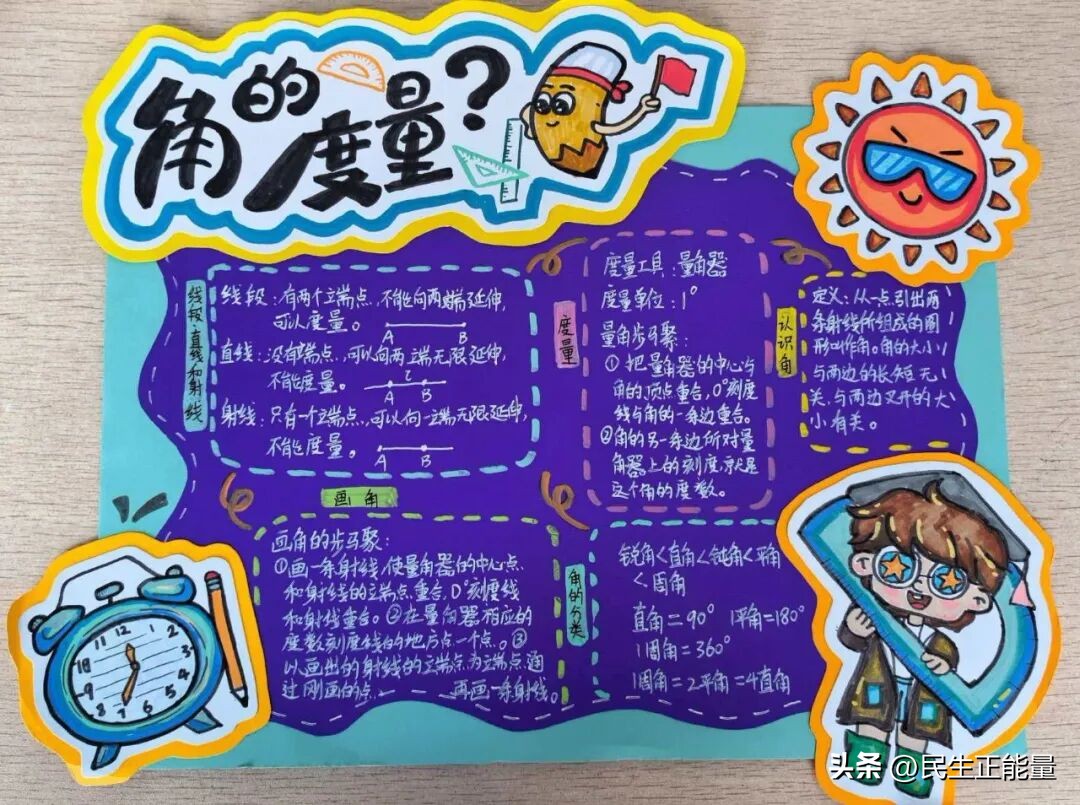 角的度量?
线段、直线和射线
线段:有两个端点,不能向两端延伸,
可以度量。
A B
直线:没有端点,可以向两端无限延伸,
不能度量。
A B
射线:只有一个端点,可以向一端无限延伸,
不能度量。
A B
度量
度量工具:量角器
度量单位:1°
量角步骤:
①把量角器的中心与
角的顶点重合,0°刻度
线与角的一条边重合。
②角的另一条边所对量
角器上的刻度,就是
这个角的度数。
认识角
定义:从一点引出两
条射线所组成的图
形叫作角。角的大小
与两边的长短无
关,与两边叉开的大
小有关。
画角
画角的步骤:
①画一条射线,使量角器的中心点
和射线的端点重合,0°刻度线
和射线重合。②在量角器相应的
度数刻度线的地方点一个点。③
以画出的射线的端点为端点,通
过刚画的点 再画一条射线。
角的分类
锐角<直角<钝角<平角
<周角
直角=90° 1平角=180°
1周角=360°
1周角=2平角=4直角
12
1
2
3
4
5
6
7
8
9
10
11
头条 @民生正能量